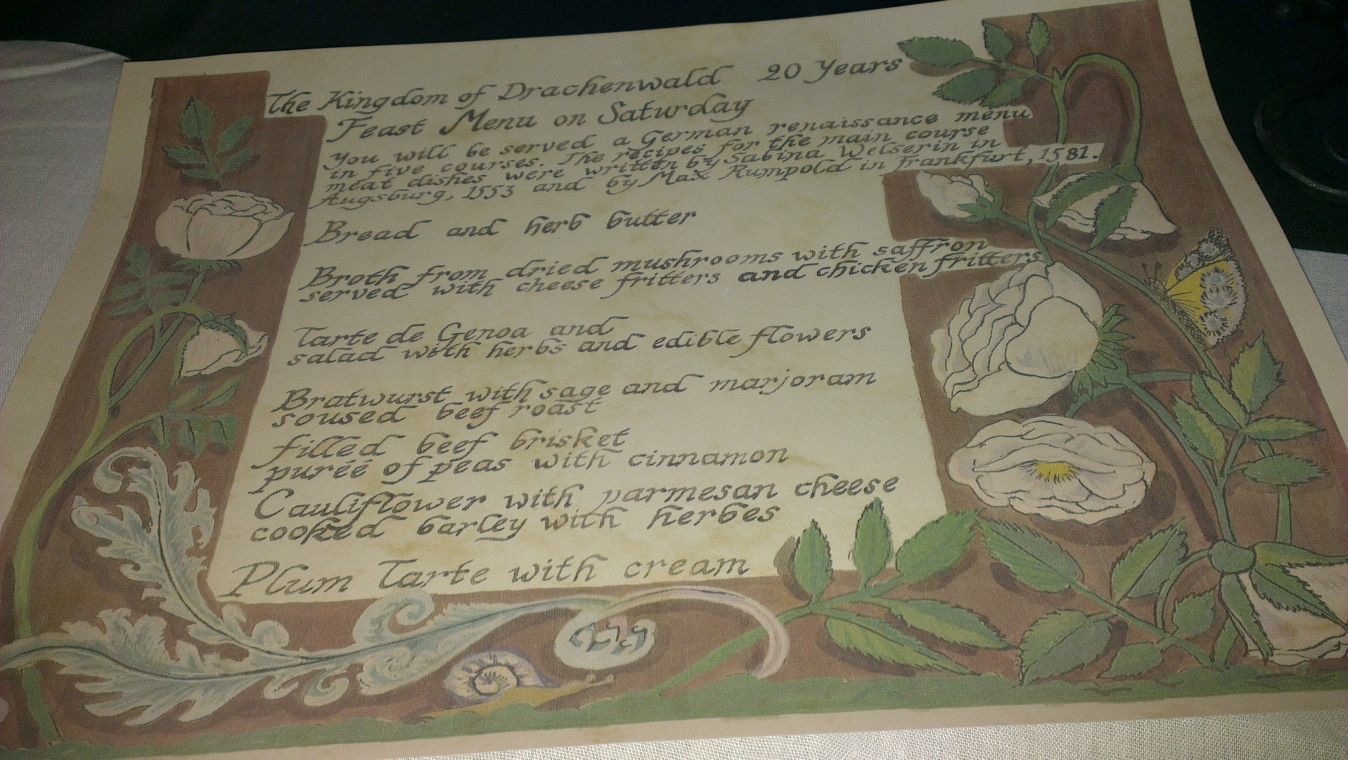 The Kingdom of Drachenwald 20 Years
Feast Menu on Saturday
you will be served a German renaissance menu
in five courses. The recipes for the main course
meat dishes were written by Sabina Welserin in
Augsburg, 1553 and by Max Rumpold in Frankfurt, 1581.
Bread and herb butter
Broth from dried mushrooms with saffron
served with cheese fritters and chicken fritters
Tarte de Genoa and
salad with herbs and edible flowers
Bratwurst with sage and marjoram
soused beef roast
filled beef brisket
purée of peas with cinnamon
Cauliflower with parmesan cheese
cooked barley with herbes
Plum Tarte with cream